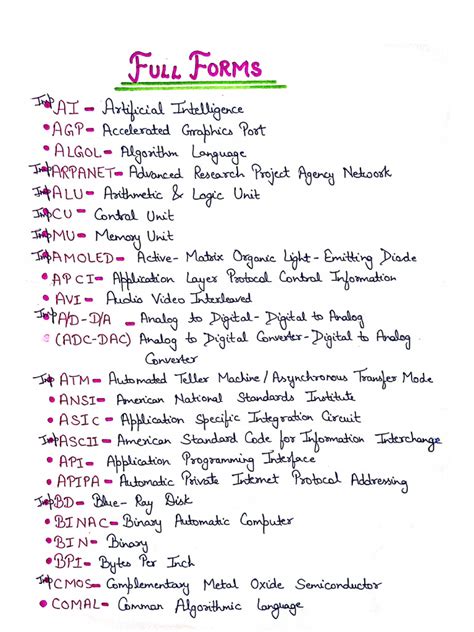 FULL FORMS
Imp AI - Artificial Intelligence
• AGP - Accelerated Graphics Port
• ALGOL - Algorithm Language
Imp ARPANET - Advanced Research Project Agency Network
Imp ALU - Arithmetic & Logic Unit
Imp CU - Control Unit
Imp MU - Memory Unit
Imp AMOLED - Active-Matrix Organic Light-Emitting Diode
• APCI - Application Layer Protocal Control Information
• AVI - Audio Video Interleaved
Imp A/D-D/A - Analog to Digital-Digital to Analog
• (ADC-DAC) Analog to Digital Converter-Digital to Analog
Converter
Imp ATM - Automated Teller Machine/Asynchronous Transfer Mode
• ANSI - American National Standards Institute
• ASIC - Application Specific Integration Circuit
Imp ASCII - American Standard Code for Information Interchange
• API - Application Programming Interface
• APIPA - Automatic Private Internet Protocal Addressing
Imp BD - Blue-Ray Disk
• BINAC - Binary Automatic Computer
• BIN - Binary
• BPI - Bytes Per Inch
Imp CMOS - Complementary Metal Oxide Semiconductor
• COMAL - Common Algorithmic Language